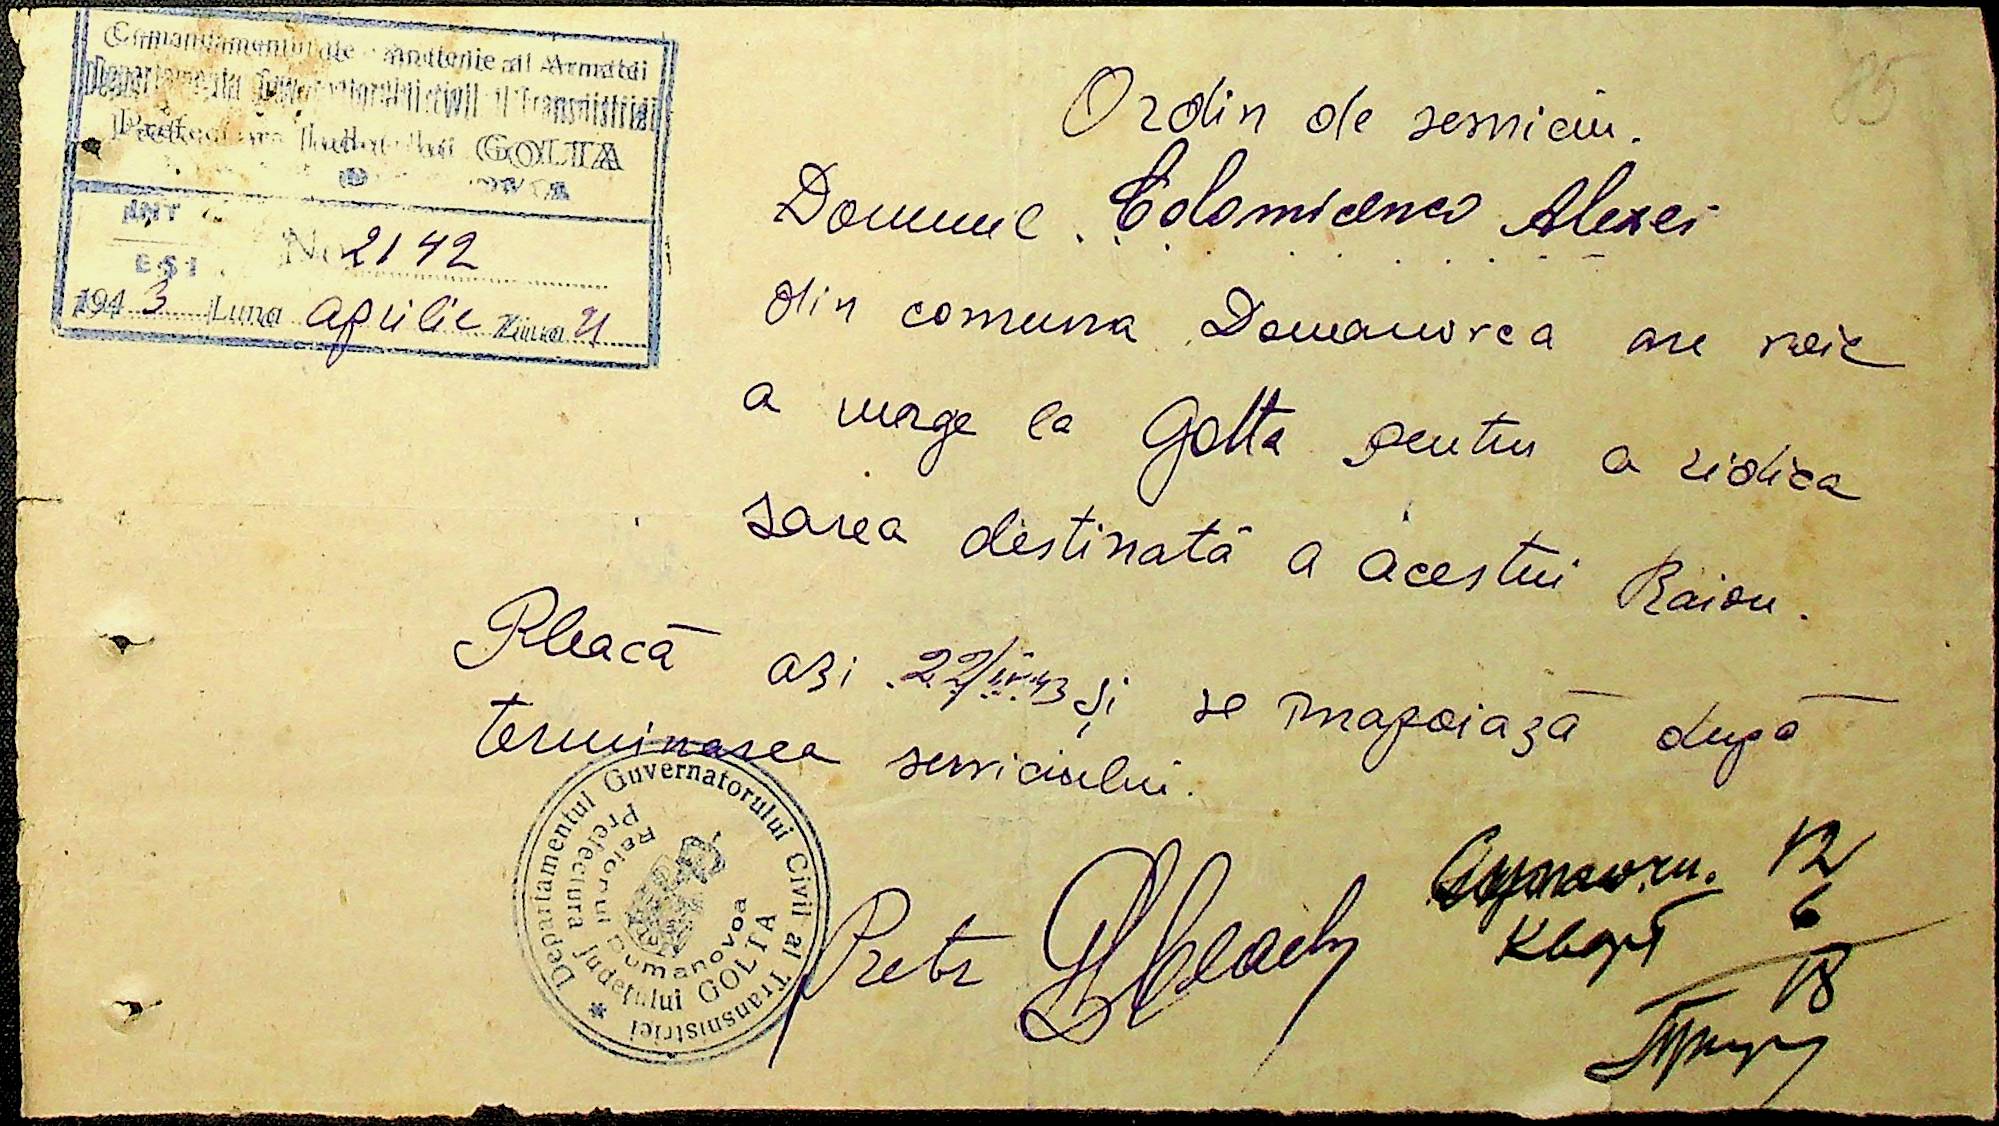 85
Comandamentul de al Armatei
Departamentul Guvernatorului civil al Transnistriei
Prefectura Judetului GOLTA
INT
EȘI No 2142
1943 Luna aprilie Ziua 21
Ordin de serviciu.
Domnul Colomicenco Alexei
din comuna Domanovca are voie
a merge la Golta pentru a ridica
sarea destinată a acestui Raion.
Pleacă azi 22/IV.43 și se înapoiază după
terminarea serviciului.
Departamentul Guvernatorului Civil al Transnistriei
Prefectura Județului GOLTA
Raionul Dumanovca
Pretor
12
6
18